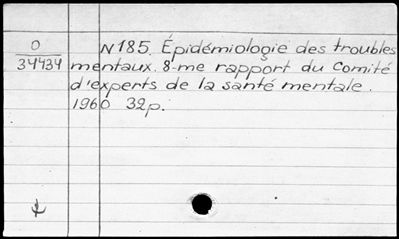 O
34434
N185. Épidémiologie des troubles
mentaux. 8-me rapport du Comité
d'experts de la santé mentale.
1960 32p.